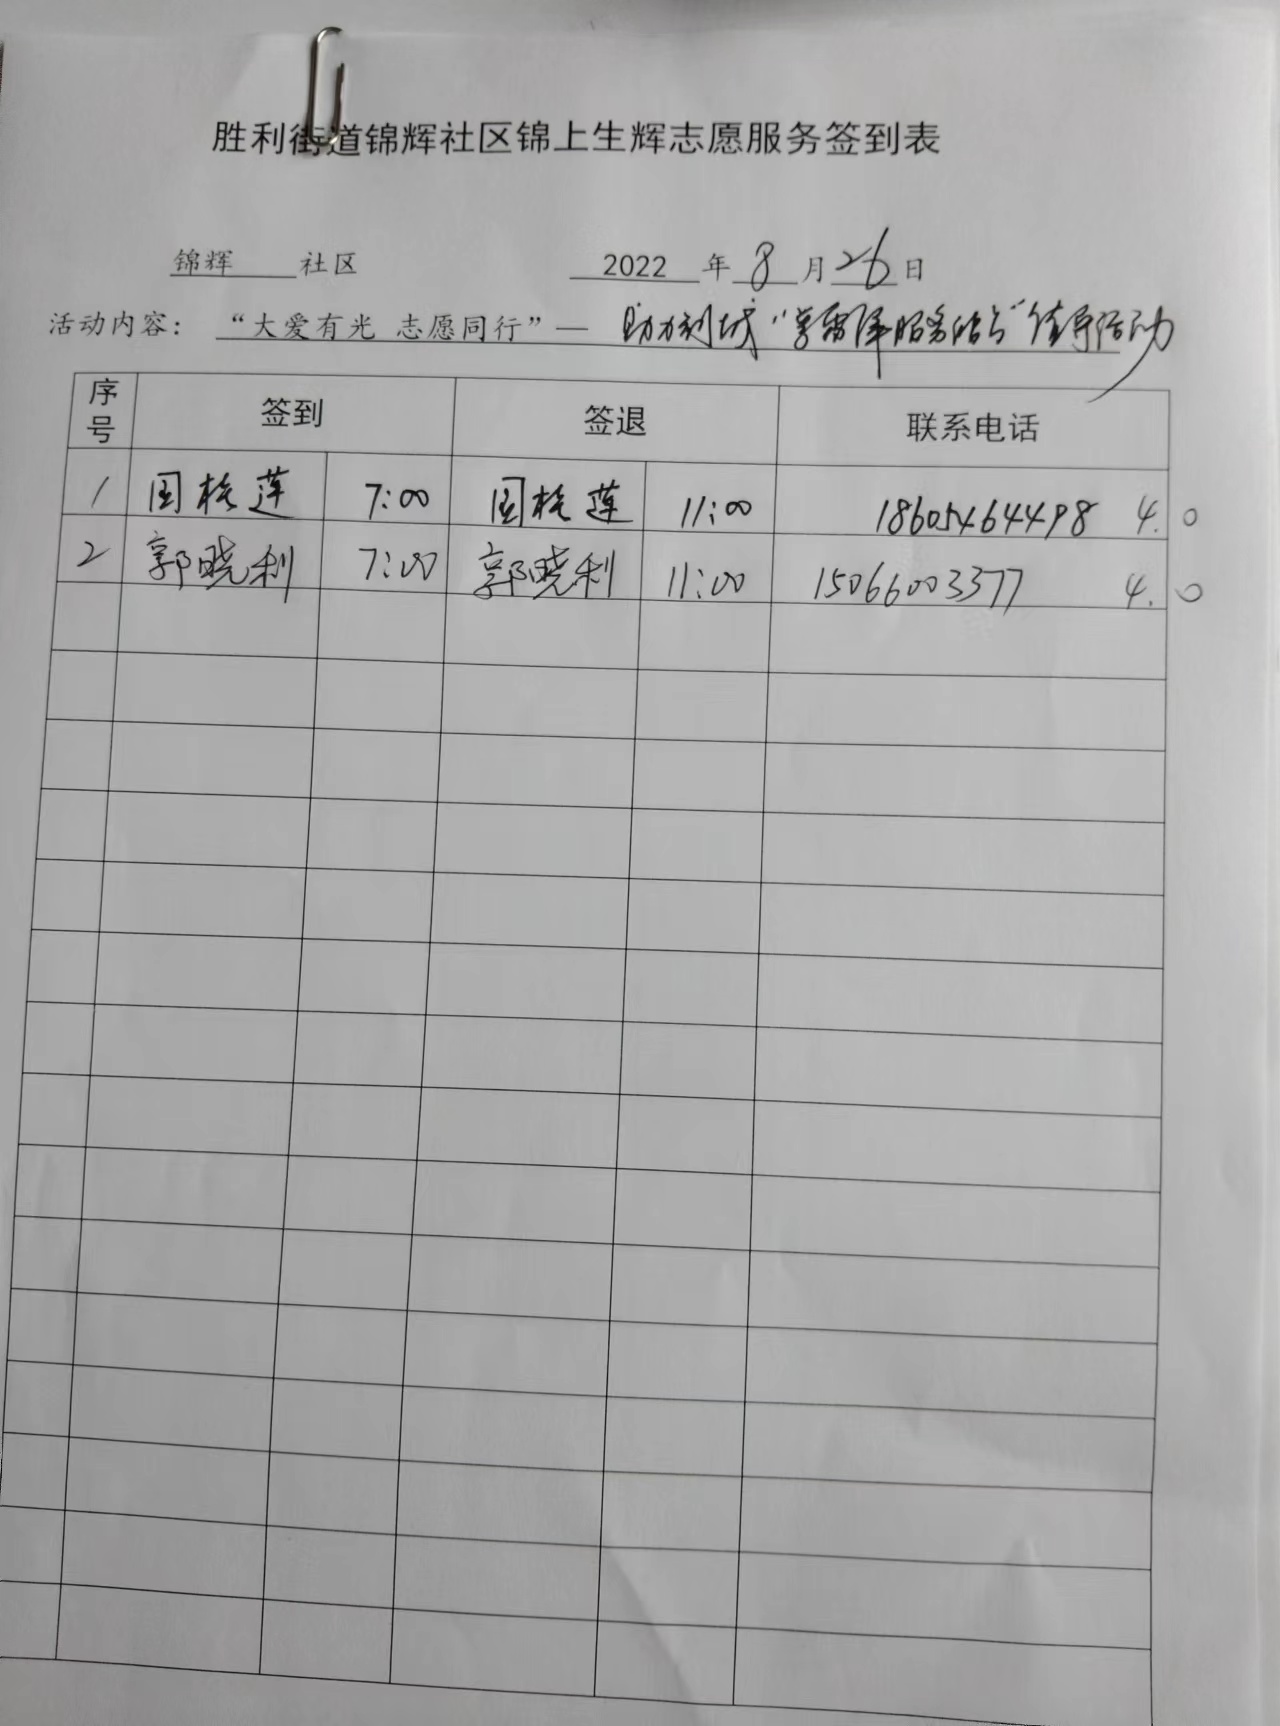 胜利街道锦辉社区锦上生辉志愿服务签到表
锦辉 社区 2022 年 8 月 26 日
活动内容： “大爱有光 志愿同行”— 助力创城“学雷锋服务站点”值守活动
序号 签到 签退 联系电话
1 国桂莲 7:00 国桂莲 11:00 18605464498 4.0
2 郭晓利 7:00 郭晓利 11:00 15066003377 4.0